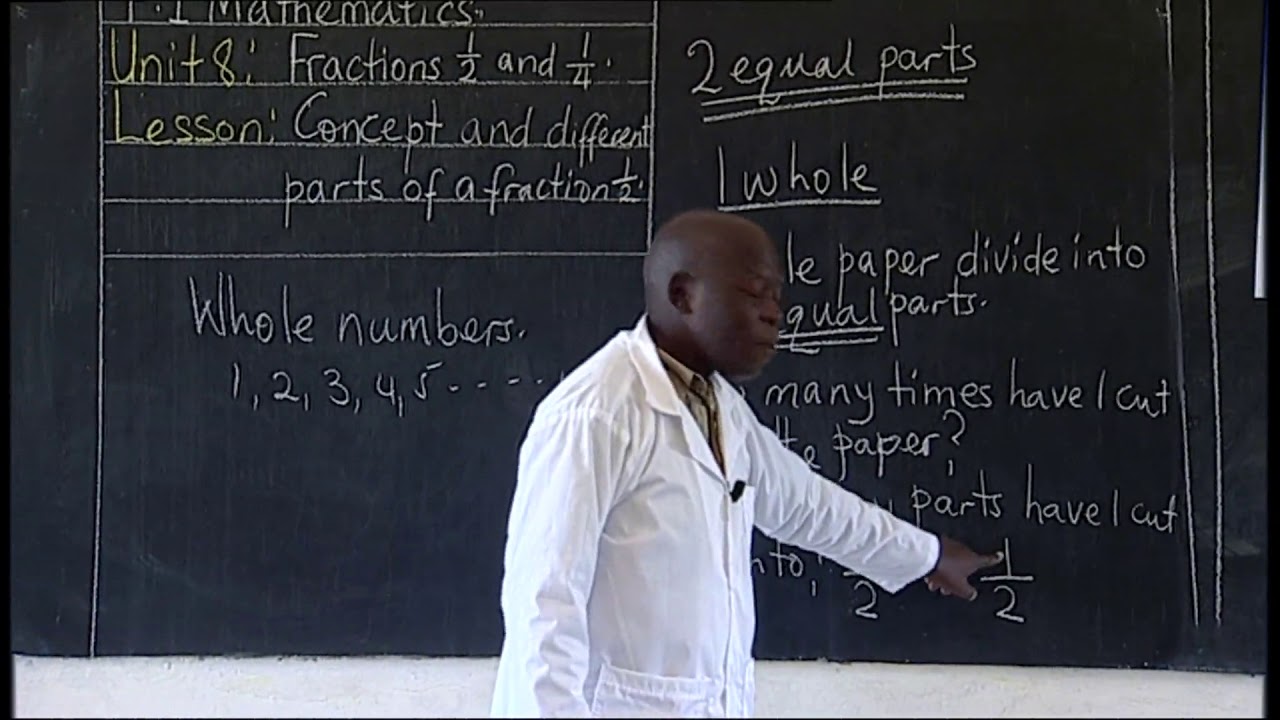 Mathematics.
Unit 8: Fractions 1/2 and 1/4.
Lesson: Concept and different
parts of a fraction 1/2.
Whole numbers.
1, 2, 3, 4, 5 - - - -
2 equal parts
1 whole
paper divide into
equal parts.
many times have I cut
paper?
parts have I cut
2
1/2